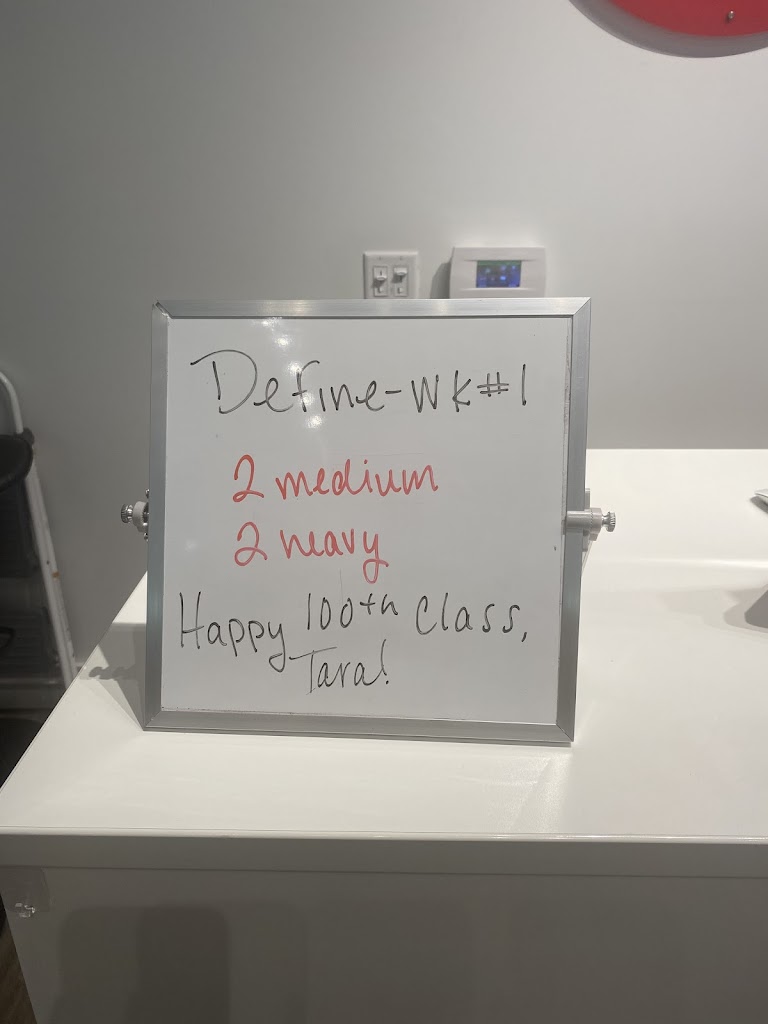 Define-WK#1
2 medium
2 heavy
Happy 100th Class,
Tara!